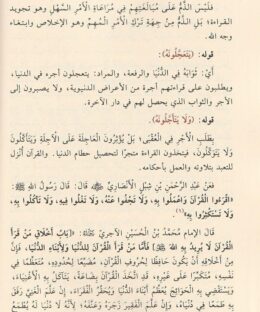 فليس الذم على مبالغتهم في مراعاة الأمر السهل وهو تجويد
القراءة؛ بل الذم من جهة ترك الأمر المهم وهو الإخلاص وابتغاء
وجه الله.
قوله: (يَتَعَجَّلُونَهُ):
أي: ثوابه في الدنيا والرفعة، والمراد: يتعجلون أجره في الدنيا،
ويطلبون على قراءتهم أجرة من الأعراض الدنيوية، ولا يصبرون إلى
الأجر والثواب الذي يحصل لهم في دار الآخرة.
قوله: (وَلَا يَتَأَجَّلُونَهُ):
بطلب الأجر في العقبى؛ بل يؤثرون العاجلة على الآجلة ويتأكلون
ولا يتوكلون، فيتخذون القراءة متجرًا لتحصيل حطام الدنيا. والقرآن أنزل
للتعبد بتلاوته والعمل بأحكامه.
فعن عبد الرحمن بن شبل الأنصاري ﷺ قال: قال رسول الله ﷺ:
«اقْرَءُوا الْقُرْآنَ وَاعْمَلُوا بِهِ، وَلَا تَجْفُوا عَنْهُ، وَلَا تَغْلُوا فِيهِ، وَلَا تَأْكُلُوا بِهِ،
وَلَا تَسْتَكْثِرُوا بِهِ»(١).
قال الإمام محمد بن الحسين الآجري: «بَابُ أَخْلَاقِ مَنْ قَرَأَ
الْقُرْآنَ لَا يُرِيدُ بِهِ اللهَ ﷻ فَأَمَّا مَنْ قَرَأَ الْقُرْآنَ لِلدُّنْيَا وَلِأَبْنَاءِ الدُّنْيَا، فَإِنَّ
مِنْ أَخْلَاقِهِ أَنْ يَكُونَ حَافِظًا لِحُرُوفِ الْقُرْآنِ، مُضَيِّعًا لِحُدُودِهِ، مُتَعَظِّمًا فِي
نَفْسِهِ، مُتَكَبِّرًا عَلَى غَيْرِهِ، قَدِ اتَّخَذَ الْقُرْآنَ بِضَاعَةً، يَتَأَكَّلُ بِهِ الْأَغْنِيَاءَ،
وَيَسْتَقْضِي بِهِ الْحَوَائِجَ يُعَظِّمُ أَبْنَاءَ الدُّنْيَا، وَيُحَقِّرُ الْفُقَرَاءَ، إِنْ عَلَّمَ الْغَنِيَّ رَفَقَ بِهِ
طَمَعًا فِي دُنْيَاهُ، وَإِنْ عَلَّمَ الْفَقِيرَ زَجَرَهُ وَعَنَّفَهُ؛ لِأَنَّهُ لَا دُنْيَا لَهُ يُطْمَعُ